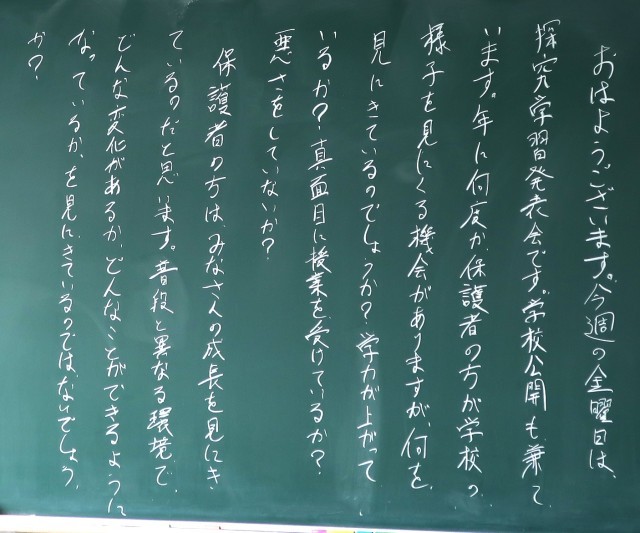 おはようございます。今週の金曜日は、
探究学習発表会です。学校公開も兼て
います。年に何度か保護者の方が学校の
様子を見にくる機会がありますが、何を
見にきているのでしょうか？学力が上がって
いるか？真面目に授業を受けているか？
悪さをしていないか？
保護者の方は、みなさんの成長を見にき
ているのだと思います。普段と異なる環境で、
どんな変化があるか、どんなことができるように
なっているか、を見にきているのではないでしょう
か？